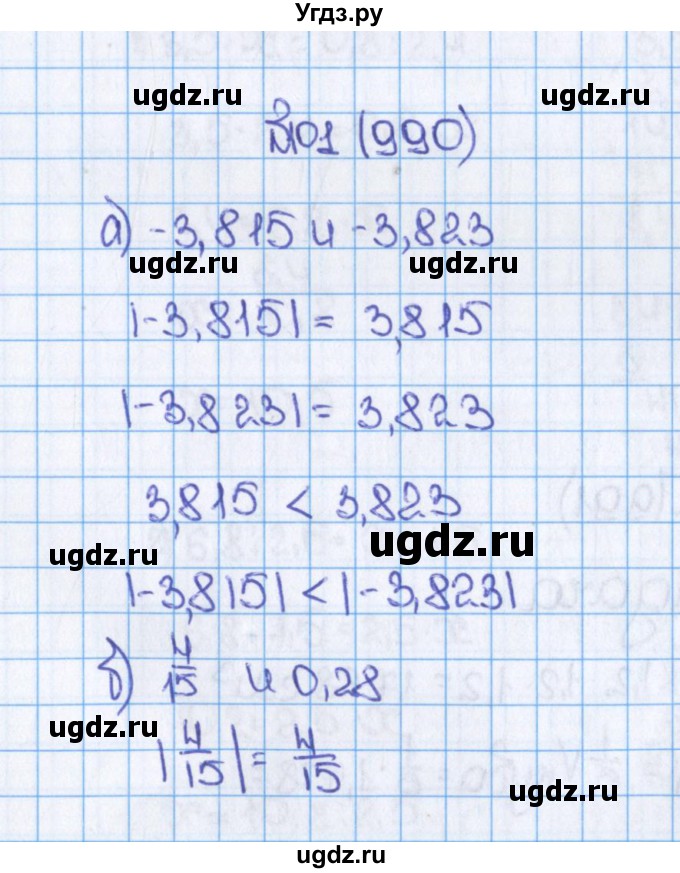 Угдз.ру
ugdz.ru ugdz.ru
№101 (990)
а) -3,815 и -3,823
ugdz.ru ugdz.ru
|-3,815| = 3,815
|-3,823| = 3,823
3,815 < 3,823
ugdz.ru ugdz.ru
|-3,815| < |-3,823|
б) 4/15 и 0,28
ugdz.ru
|4/15| = 4/15
ugdz.ru
ugdz.ru